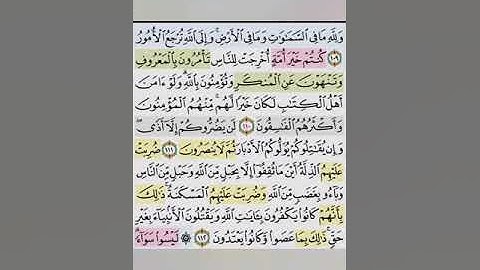 وَلِلَّهِ مَا فِي السَّمَٰوَٰتِ وَمَا فِي الْأَرْضِ ۚ وَإِلَى اللَّهِ تُرْجَعُ الْأُمُورُ
﴿١٠٩﴾ كُنتُمْ خَيْرَ أُمَّةٍ أُخْرِجَتْ لِلنَّاسِ تَأْمُرُونَ بِالْمَعْرُوفِ
وَتَنْهَوْنَ عَنِ الْمُنكَرِ وَتُؤْمِنُونَ بِاللَّهِ ۗ وَلَوْ ءَامَنَ
أَهْلُ الْكِتَٰبِ لَكَانَ خَيْرًا لَّهُم ۚ مِّنْهُمُ الْمُؤْمِنُونَ
وَأَكْثَرُهُمُ الْفَٰسِقُونَ ﴿١١٠﴾ لَن يَضُرُّوكُمْ إِلَّا أَذًى ۖ
وَإِن يُقَٰتِلُوكُمْ يُوَلُّوكُمُ الْأَدْبَارَ ثُمَّ لَا يُنصَرُونَ ﴿١١١﴾ ضُرِبَتْ
عَلَيْهِمُ الذِّلَّةُ أَيْنَ مَا ثُقِفُوا إِلَّا بِحَبْلٍ مِّنَ اللَّهِ وَحَبْلٍ مِّنَ النَّاسِ
وَبَآءُو بِغَضَبٍ مِّنَ اللَّهِ وَضُرِبَتْ عَلَيْهِمُ الْمَسْكَنَةُ ۚ ذَٰلِكَ
بِأَنَّهُمْ كَانُوا يَكْفُرُونَ بِـَٔايَٰتِ اللَّهِ وَيَقْتُلُونَ الْأَنۢبِيَآءَ بِغَيْرِ
حَقٍّ ۚ ذَٰلِكَ بِمَا عَصَوا وَّكَانُوا يَعْتَدُونَ ﴿١١٢﴾ ۞ لَيْسُوا سَوَآءً ۗ